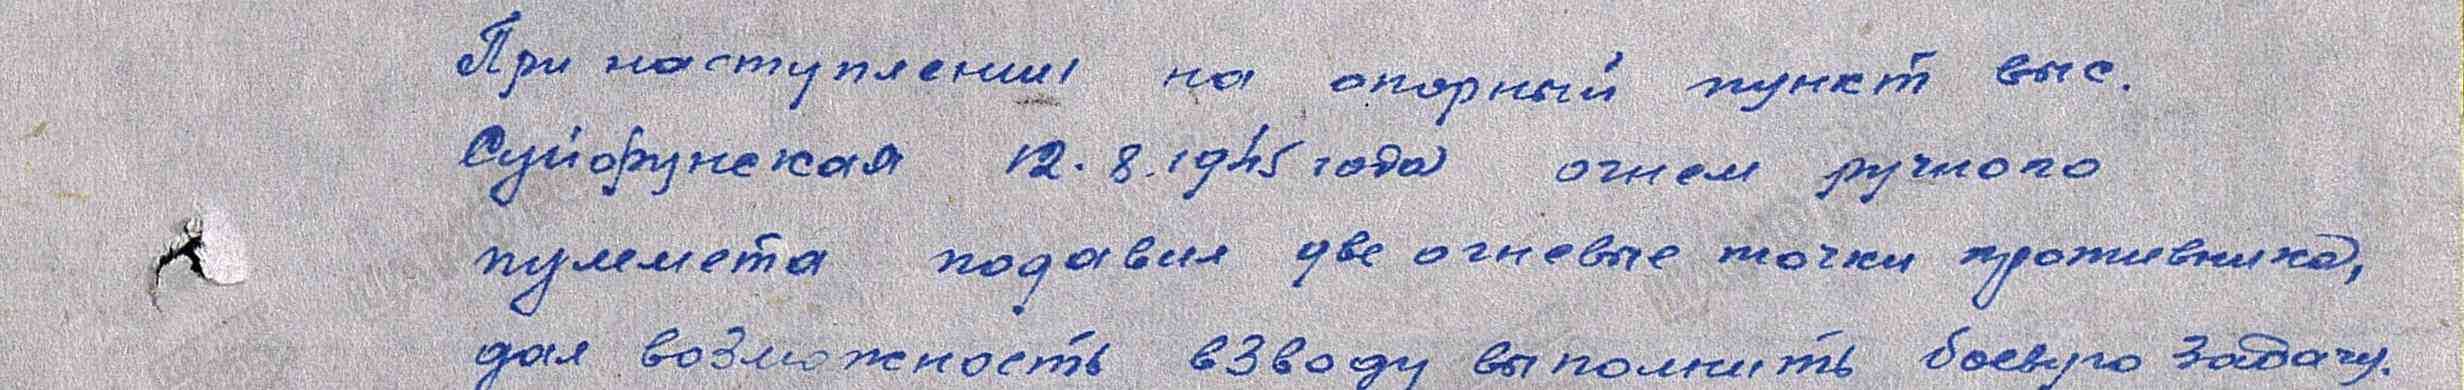 При наступлении на опорный пункт выс.
Суйфунская 12.8.1945 года огнем ручного
пулемета подавил две огневые точки противника,
дал возможность взводу выполнить боевую задачу.